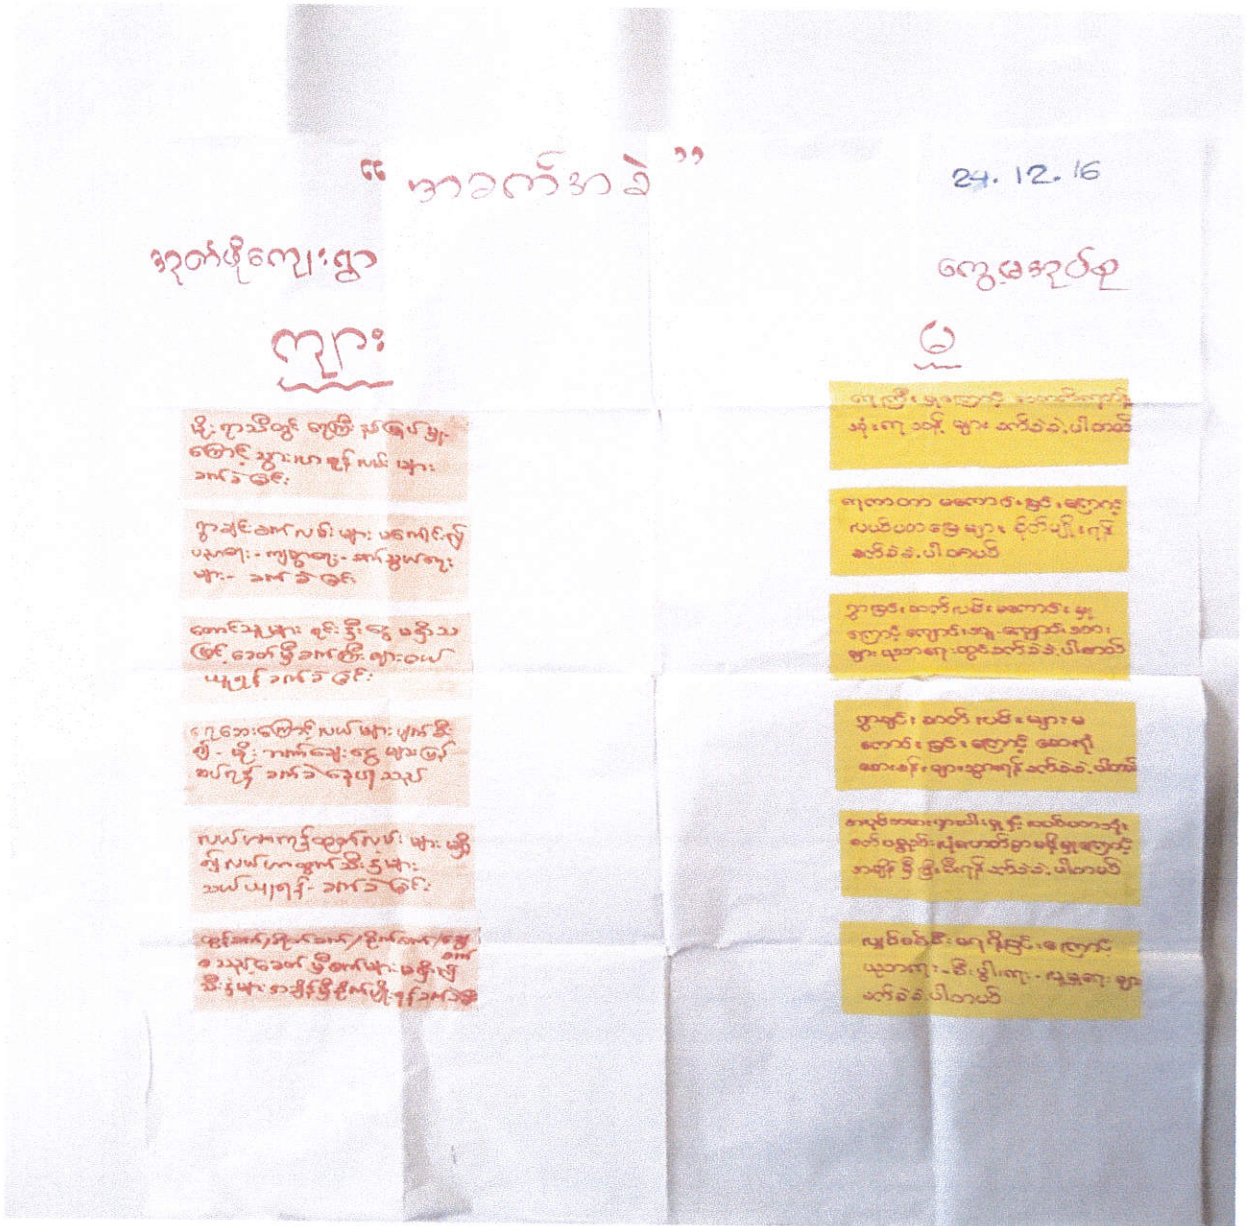 “ အခက်အခဲ ”
24. 12. 16
အုတ်ဖိုကျေးရွာ
ကွေ့မအုပ်စု
ကျား
မိုးရာသီတွင် ရေကြီး နစ်မြုပ်မှု
ကြောင့် သွားလာရန် လမ်းများ
ခက်ခဲခြင်း
ရွာချင်းဆက်လမ်းများ မကောင်း၍
ပညာရေး - ကျန်းမာရေး - ဆက်သွယ်ရေး
များ - ခက်ခဲခြင်း
တောင်သူများ ရင်းနှီးငွေ မရှိသ
ဖြင့် ခေတ်မှီစက်ကြီးများ ဝယ်
ယူရန် ခက်ခဲခြင်း
ရေဘေးကြောင့် လယ်များပျက်စီး
၍ - မိုး ချေးငွေများ ပြန်
ဆပ်ရန် ခက်ခဲနေပါသည်
လယ်ယာကုန်ထုတ်လမ်းများ မရှိ
၍ လယ်ယာထွက်သီးနှံများ
သယ်ယူရန် - ခက်ခဲခြင်း
ထွန်စက်/ရိတ်စက်/စိုက်စက်/ခြွေ
စက်
စသည့်ခေတ်မှီစက်များ မရှိ၍
သီးနှံများ အချိန်မှီစိုက်ပျိုးရန်ခက်ခဲ
မ
ရေကြီးမှုကြောင့်
သုံးရေသန့်များ ခက်ခဲခဲ့ပါတယ်
ရေကာတာ မကောင်းခြင်းကြောင့်
လယ်ယာမြေများ စိုက်ပျိုးရန်
ခက်ခဲခဲ့ပါတယ်
ရွာချင်းဆက်လမ်းမကောင်းမှု
ကြောင့် ကျောင်းသူ၊ ကျောင်းသား
များ ပညာရေးတွင်ခက်ခဲခဲ့ပါတယ်
ရွာချင်းဆက်လမ်းများမ
ကောင်းခြင်းကြောင့် ဆေးရုံ
ဆေးခန်းများသွားရန်ခက်ခဲခဲ့ပါတယ်
အလုပ်သမားရှားပါးမှုနှင့် လယ်ယာသုံး
စက်ပစ္စည်းလုံလောက်မှုမရှိမှုကြောင့်
အချိန်မှီ ပြီးစီးရန် ခက်ခဲခဲ့ပါတယ်
လျှပ်စစ်မီးမရရှိခြင်းကြောင့်
ပညာရေး - စီးပွါးရေး - လူမှုရေးများ
ခက်ခဲခဲ့ပါတယ်